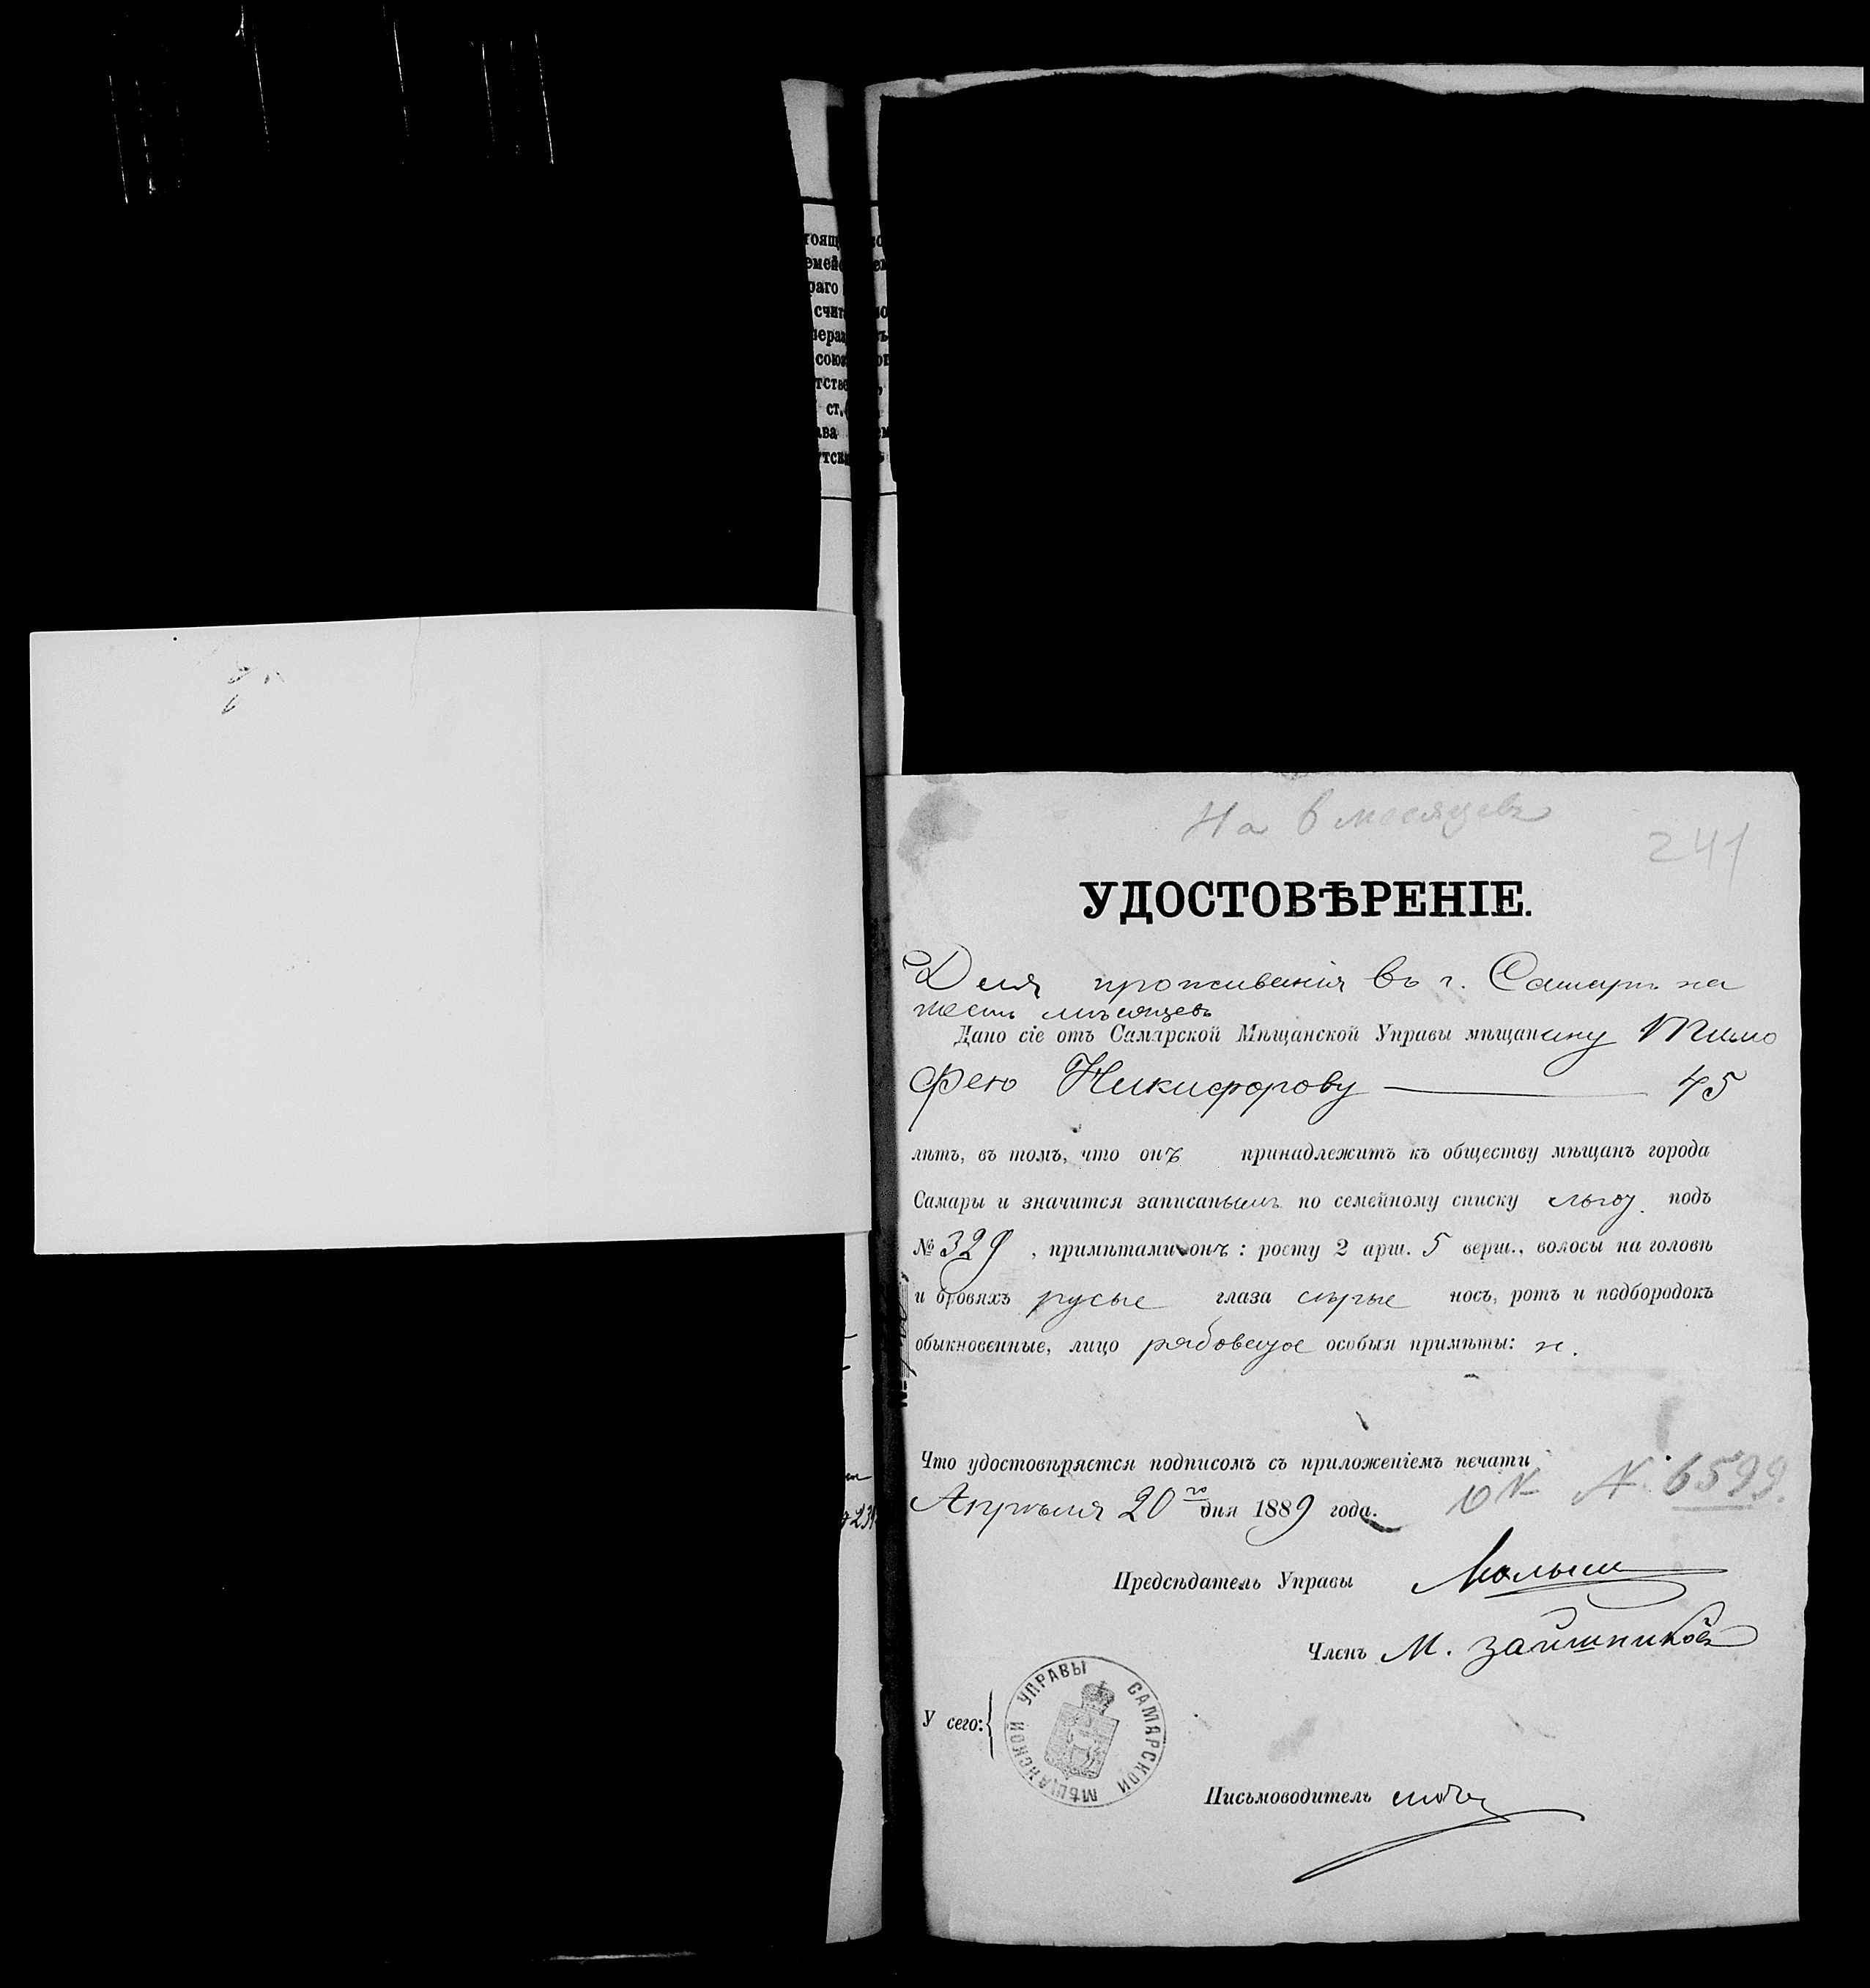 На 6 месяцевъ
241
УДОСТОВѢРЕНІЕ.
Для проживанія въ г. Самарѣ на
шесть мѣсяцевъ
Дано сіе отъ Самарской Мѣщанской Управы мѣщанину Тимо
фею Никифорову 45
лѣтъ, въ томъ, что онъ принадлежитъ къ обществу мѣщанъ города
Самары и значится записаннымъ по семейному списку подъ
№ 329, примѣтами онъ: росту 2 арш. 5 верш., волосы на головѣ
и бровяхъ русые глаза сѣрые носъ, ротъ и подбородокъ
обыкновенные, лицо рябоватое особыя примѣты: н.
Что удостовѣряется подписомъ съ приложеніемъ печати
Апрѣля 20го дня 1889 года. № 6599.
Предсѣдатель Управы
Членъ М.
У сего:
САМАРСКОЙ МѢЩАНСКОЙ УПРАВЫ
Письмоводитель